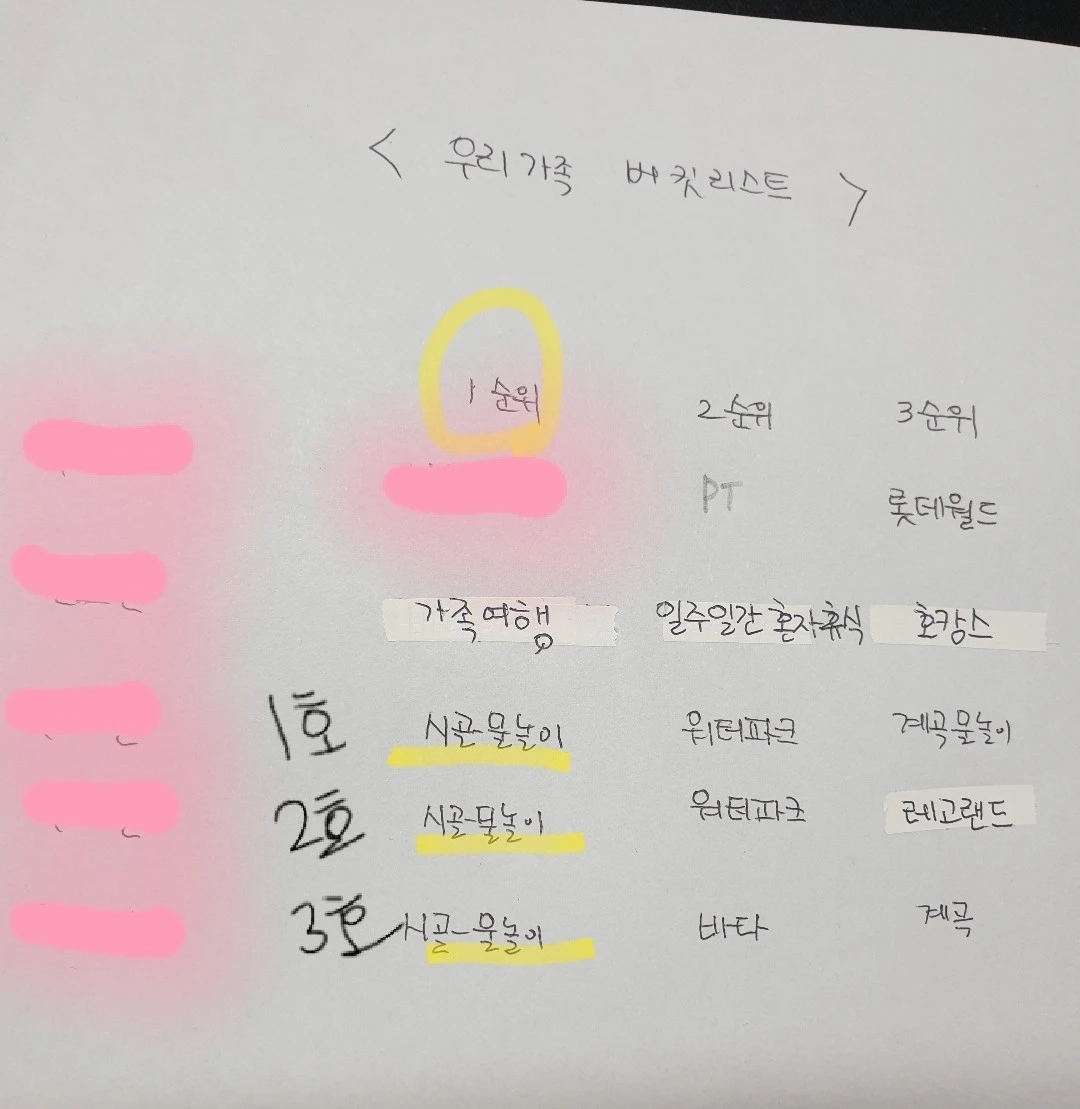 < 우리가족 버킷리스트 >
1순위 2순위 3순위
PT 롯데월드
가족여행 일주일간 혼자휴식 호캉스
1호 시골-물놀이 워터파크 계곡물놀이
2호 시골-물놀이 워터파크 레고랜드
3호 시골-물놀이 바다 계곡